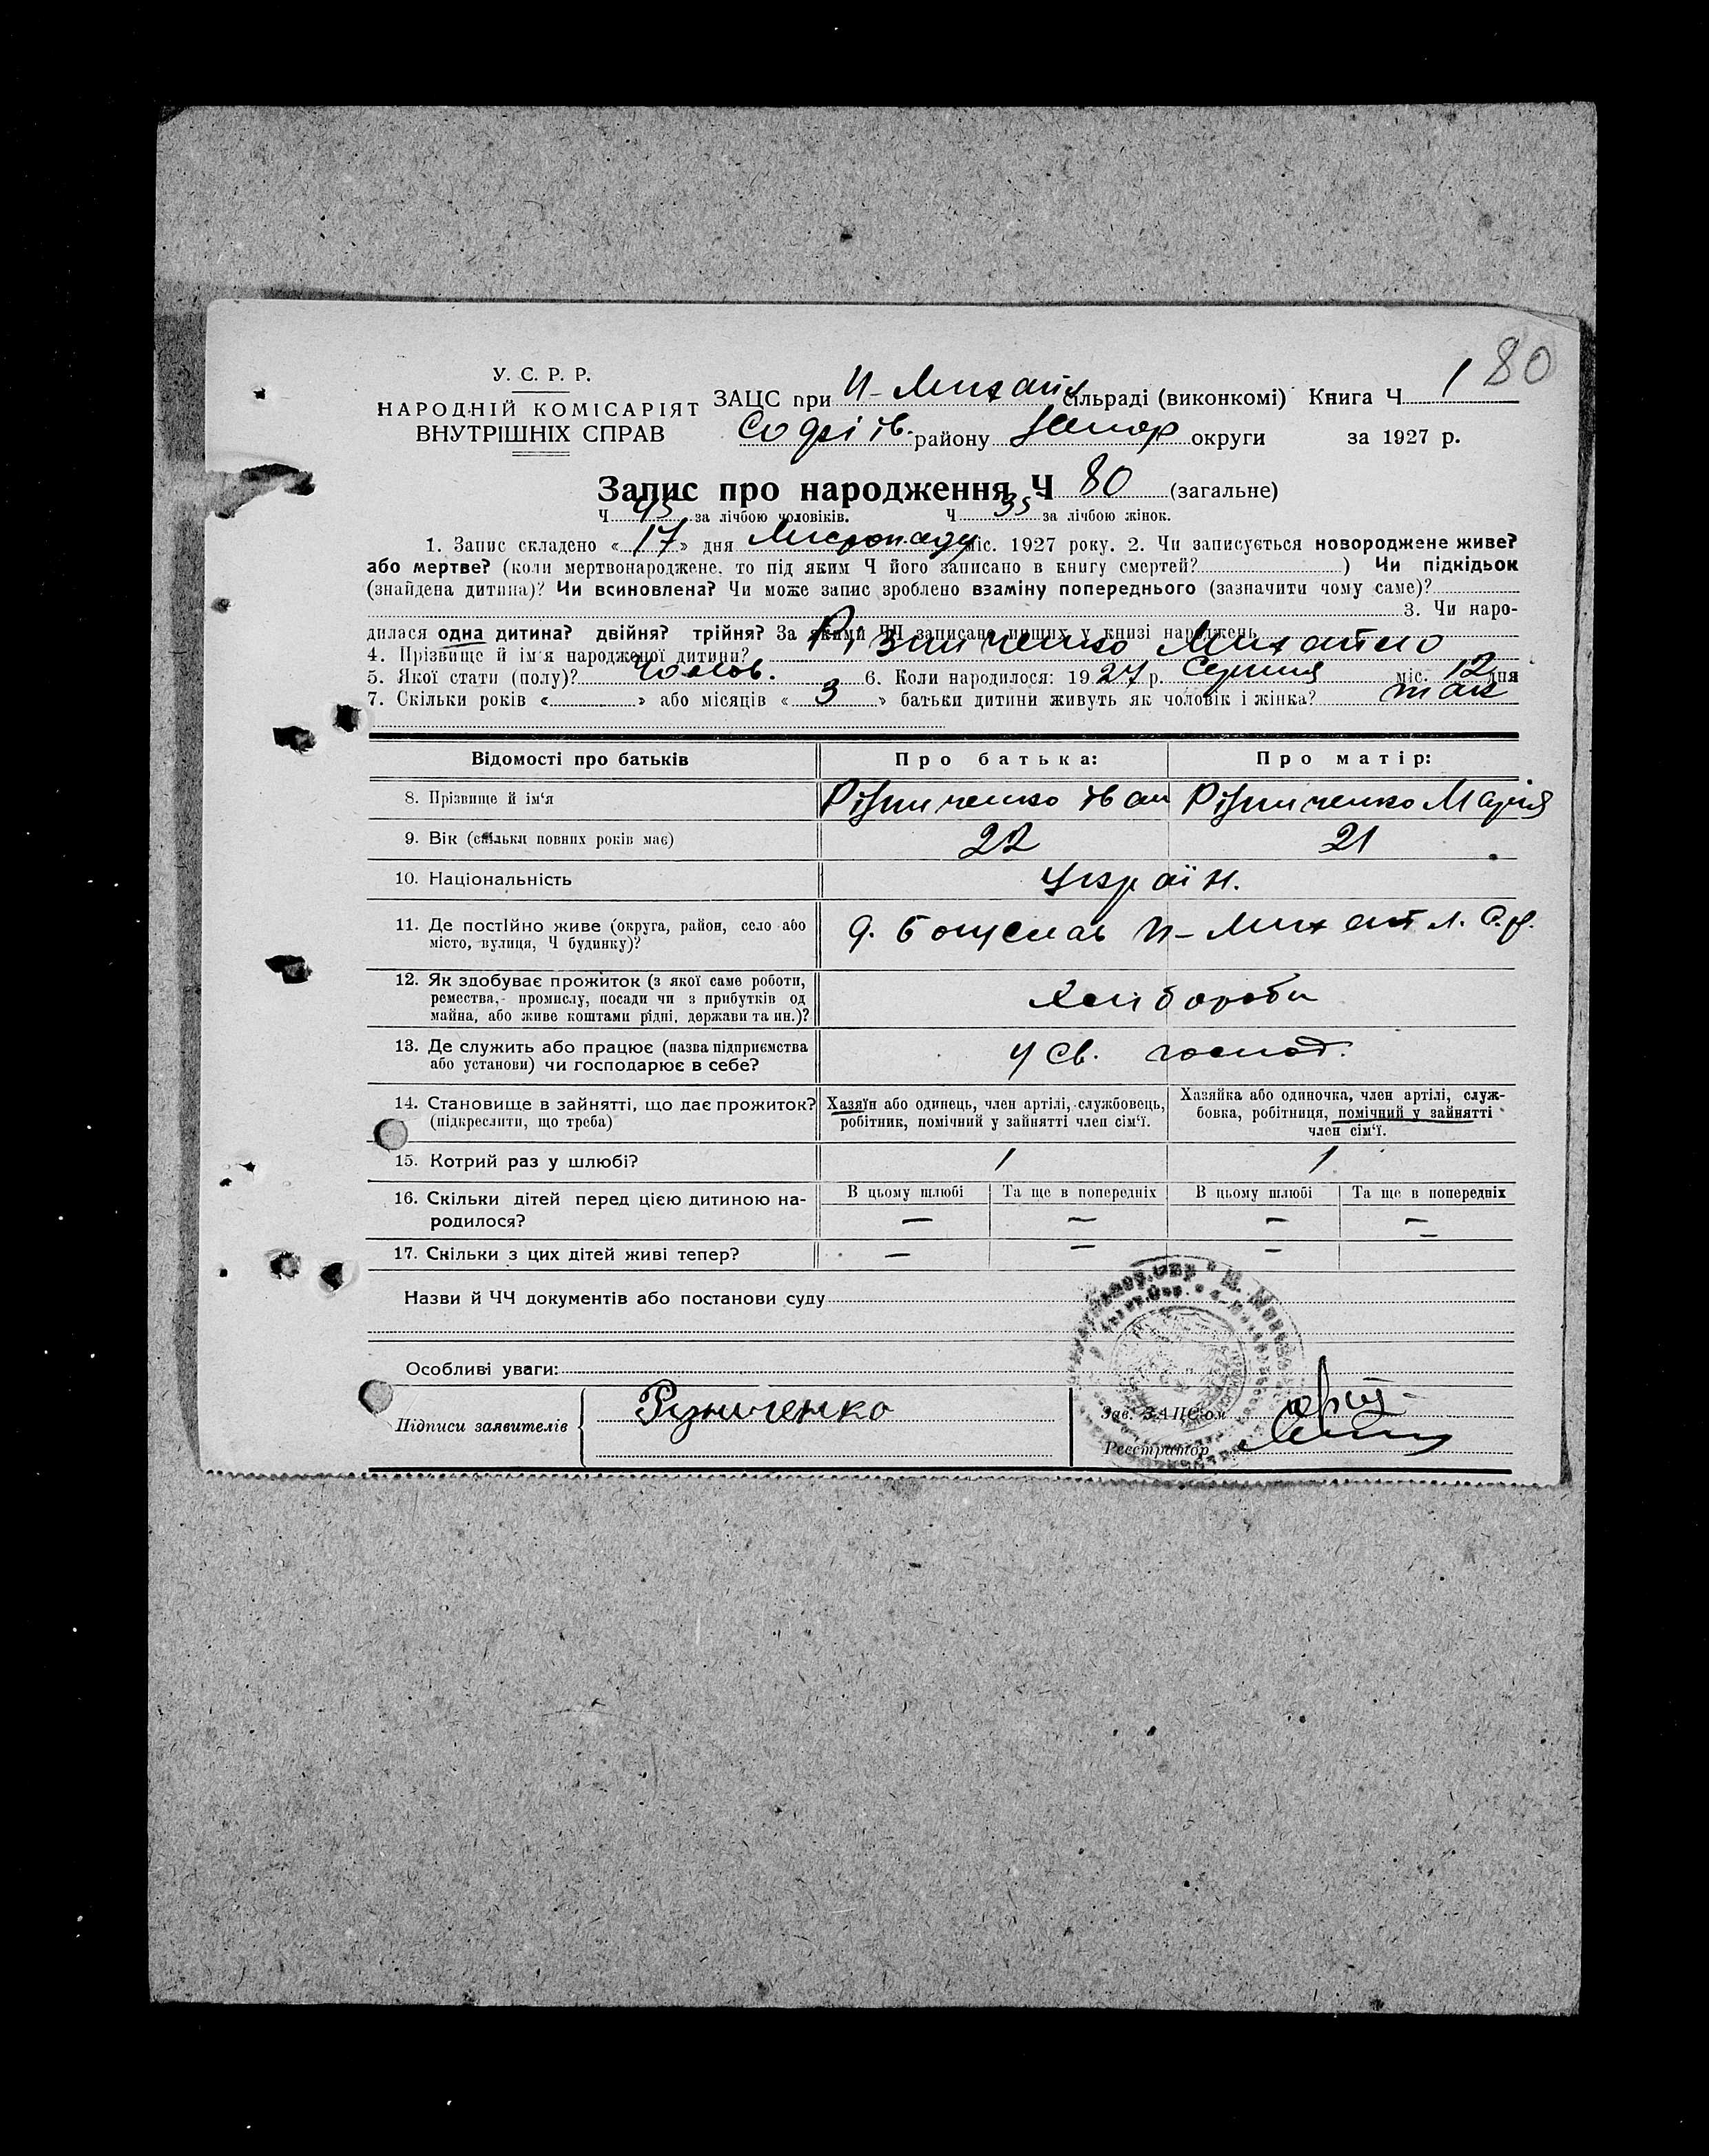 80
У. С. Р. Р.
НАРОДНІЙ КОМІСАРІЯТ
ВНУТРІШНІХ СПРАВ
ЗАЦС при Н-Михайл сільраді (виконкомі) Книга Ч 1
Софіїв. району Запор округи за 1927 р.
Запис про народження Ч 80 (загальне)
Ч 45 за лічбою чоловіків. Ч 35 за лічбою жінок.
1. Запис складено « 17 » дня Листопаду міс. 1927 року. 2. Чи записується новороджене живе?
або мертве? (коли мертвонароджене, то під яким Ч його записано в книгу смертей? ) Чи підкідьок
(знайдена дитина)? Чи всиновлена? Чи може запис зроблено взаміну попереднього (зазначити чому саме)?
3. Чи наро-
дилася одна дитина? двійня? трійня? За якими ЧЧ записано инших у книзі народжень
4. Прізвище й ім'я народженої дитини? Різниченко Михайло
5. Якої стати (полу)? Чолов. 6. Коли народилося: 1927 р. Серпня міс. 12 дня
7. Скільки років « » або місяців « 3 » батьки дитини живуть як чоловік і жінка? так
Відомості про батьків Про батька: Про матір:
8. Прізвище й ім'я Різниченко Іван Різниченко Марія
9. Вік (скільки повних років має) 22 21
10. Національність Україн.
11. Де постійно живе (округа, район, село або
місто, вулиця, Ч будинку)? Н-Михайл.
12. Як здобуває прожиток (з якої саме роботи,
ремества, промислу, посади чи з прибутків од
майна, або живе коштами рідні, держави та ин.)? Хліборобн
13. Де служить або працює (назва підприємства
або установи) чи господарює в себе? У св. господ.
14. Становище в зайнятті, що дає прожиток?
(підкреслити, що треба)
Хазяїн або одинець, член артілі, службовець,
робітник, помічний у зайнятті член сім'ї.
Хазяйка або одиночка, член артілі, служ-
бовка, робітниця, помічний у зайнятті
член сім'ї.
15. Котрий раз у шлюбі? 1 1
16. Скільки дітей перед цією дитиною на-
родилося?
В цьому шлюбі Та ще в попередніх В цьому шлюбі Та ще в попередніх
— — — —
17. Скільки з цих дітей живі тепер? — — — —
Назви й ЧЧ документів або постанови суду
Особливі уваги:
Підписи заявителів Ризниченко
Зав. ЗАЦС'ом
Реєстратор